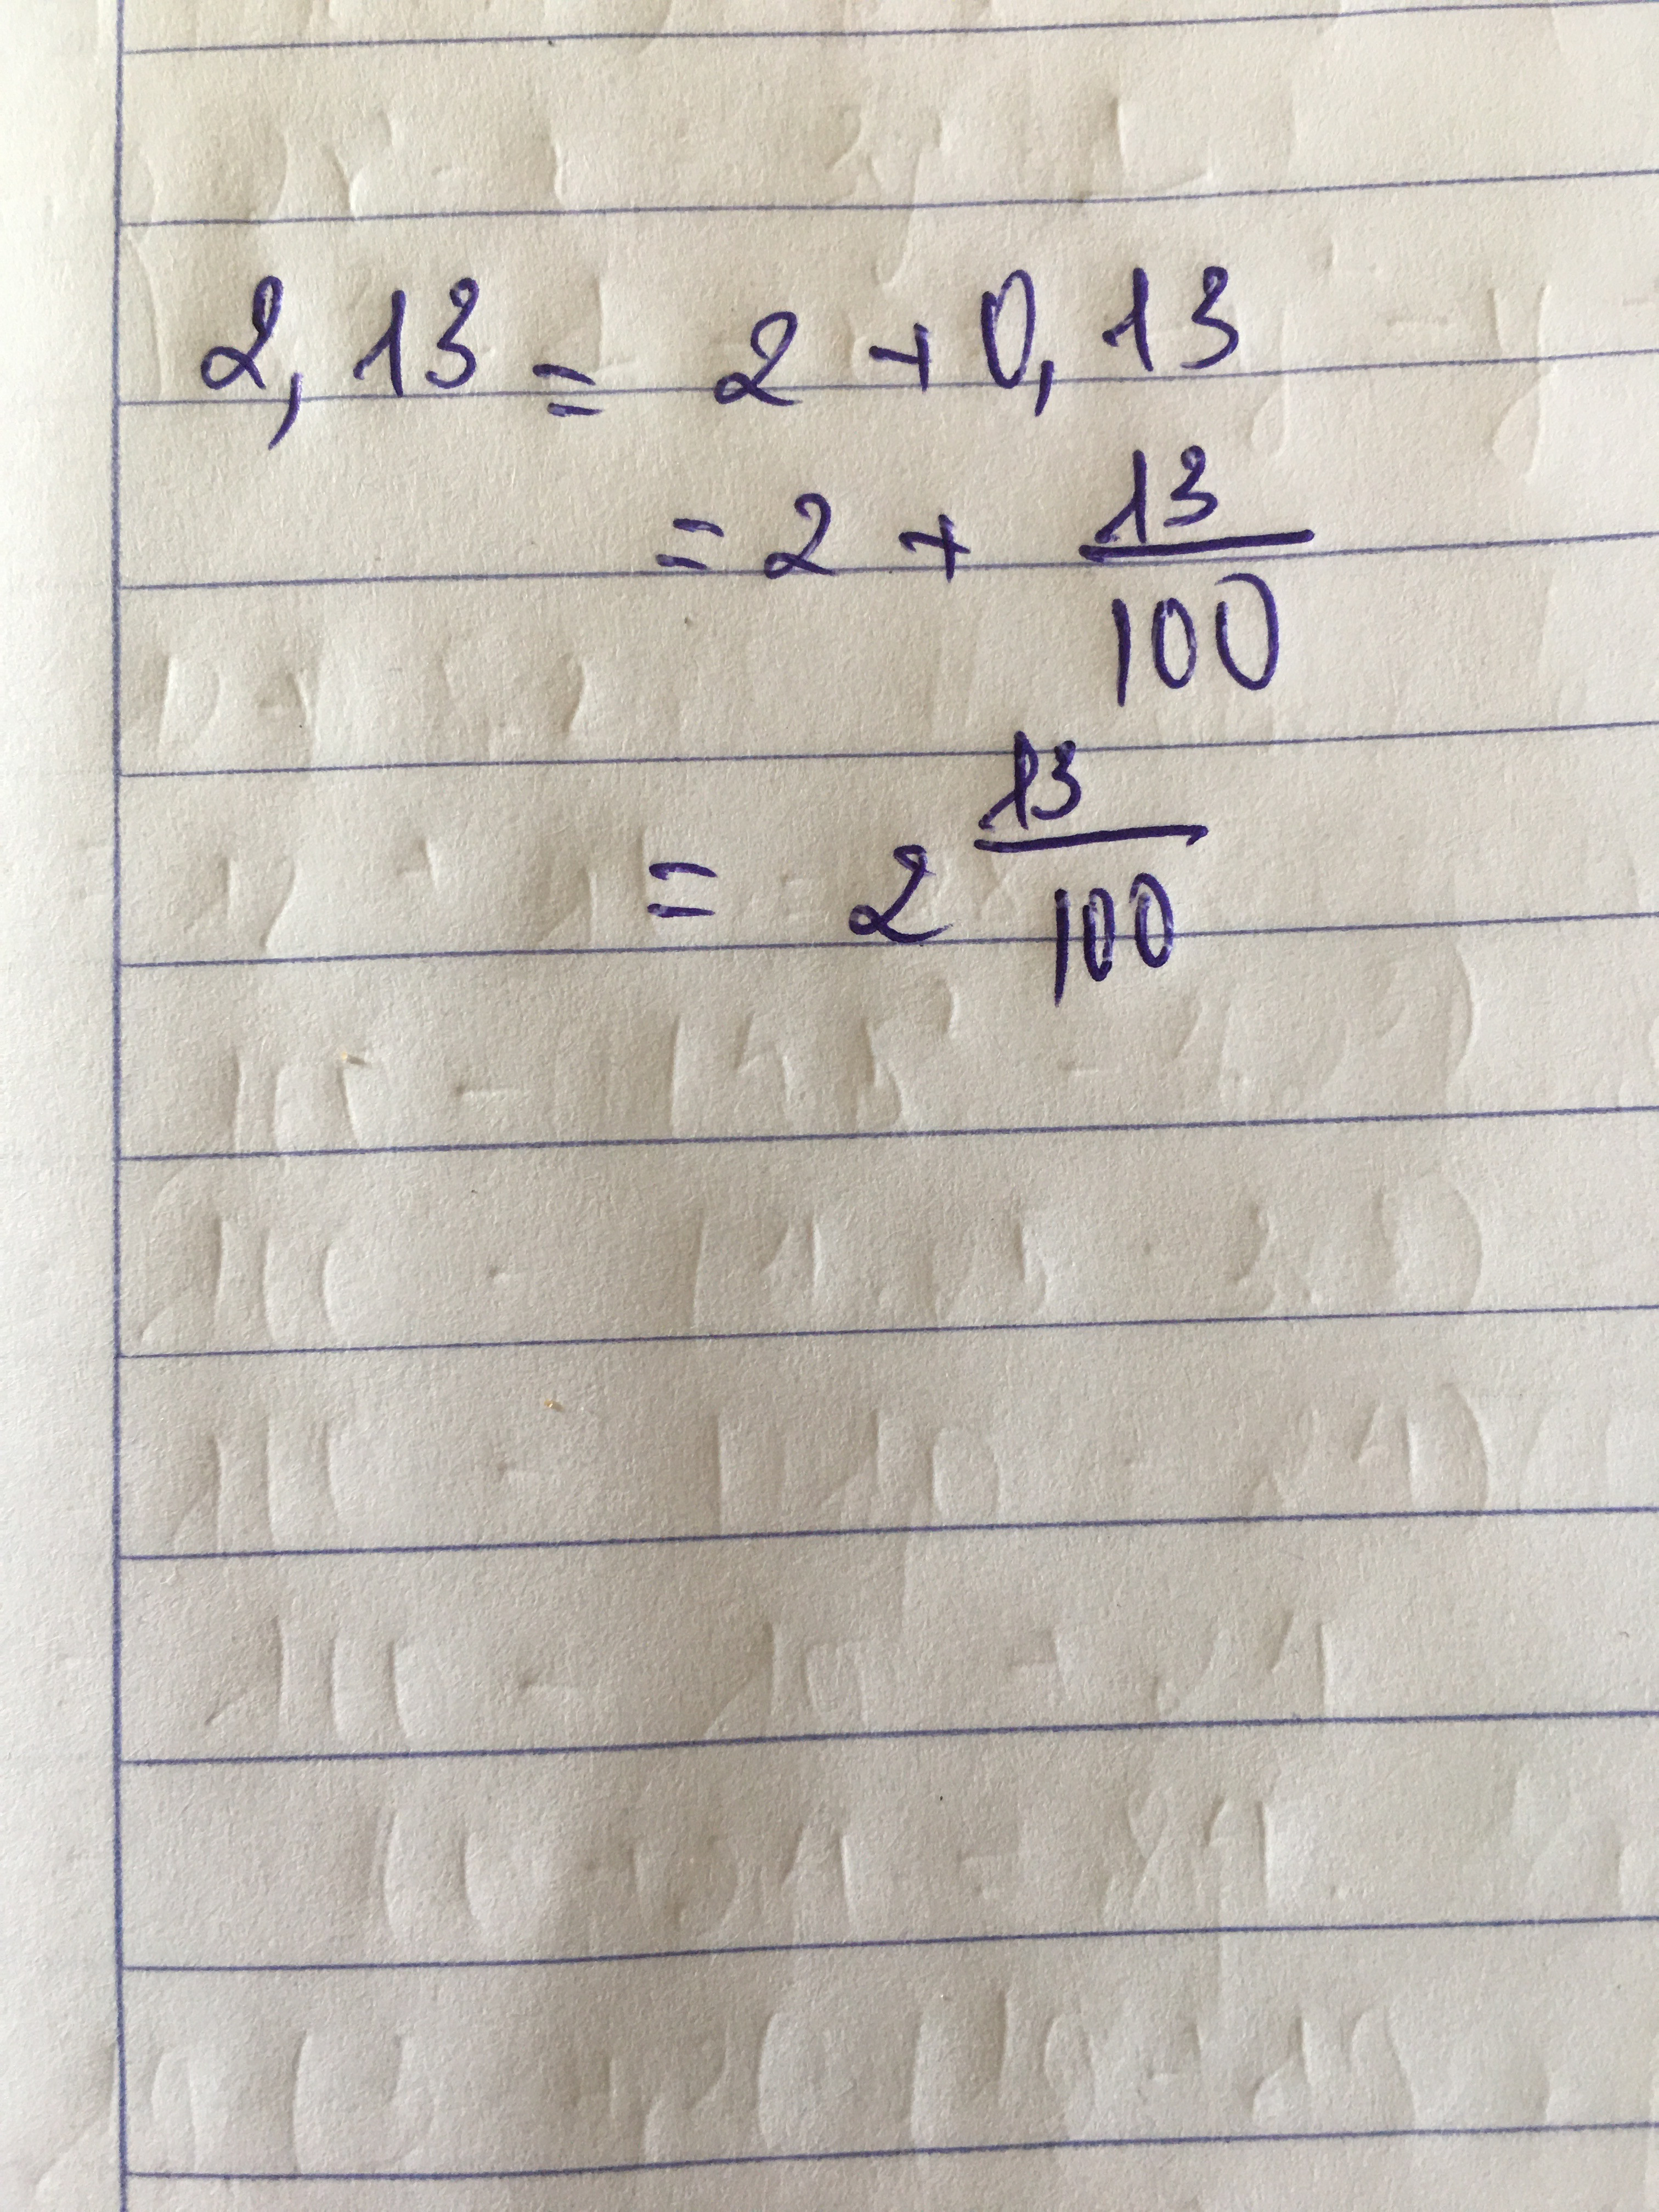 2,13 = 2 + 0,13
= 2 + 13/100
= 2 13/100